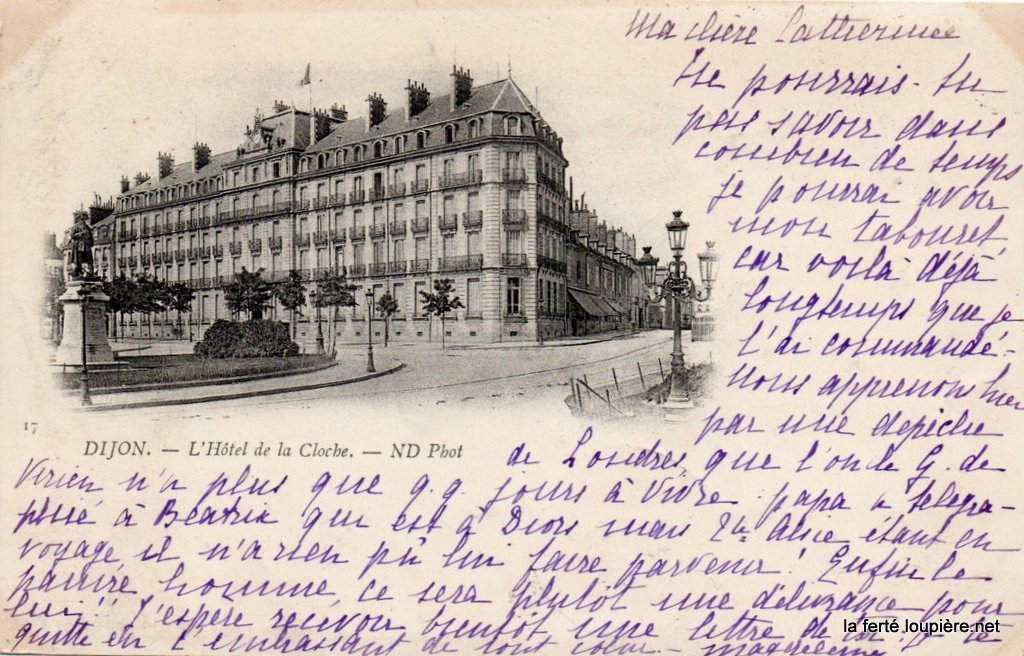 Ma chère Catherine
Ne pourrais-tu
pas savoir dans
combien de temps
je pourrai avoir
mon tabouret
car voilà déjà
longtemps que je
l'ai commandé.
Nous apprenons hier
par une dépêche
17
DIJON. — L'Hôtel de la Cloche. — ND Phot
de Londres, que l'oncle G. de
Virien n'a plus que q.q. jours à vivre. papa a télégra-
phié à Béatrix qui est à Diors mais Alice étant en
voyage il n'a rien pû lui faire parvenir! Enfin le
pauvre homme, ce sera plutôt une délivrance pour
lui!! J'espère recevoir bientôt une lettre de toi je te
quitte en t'embrassant de tout cœur. Magdeleine
la ferté loupière.net